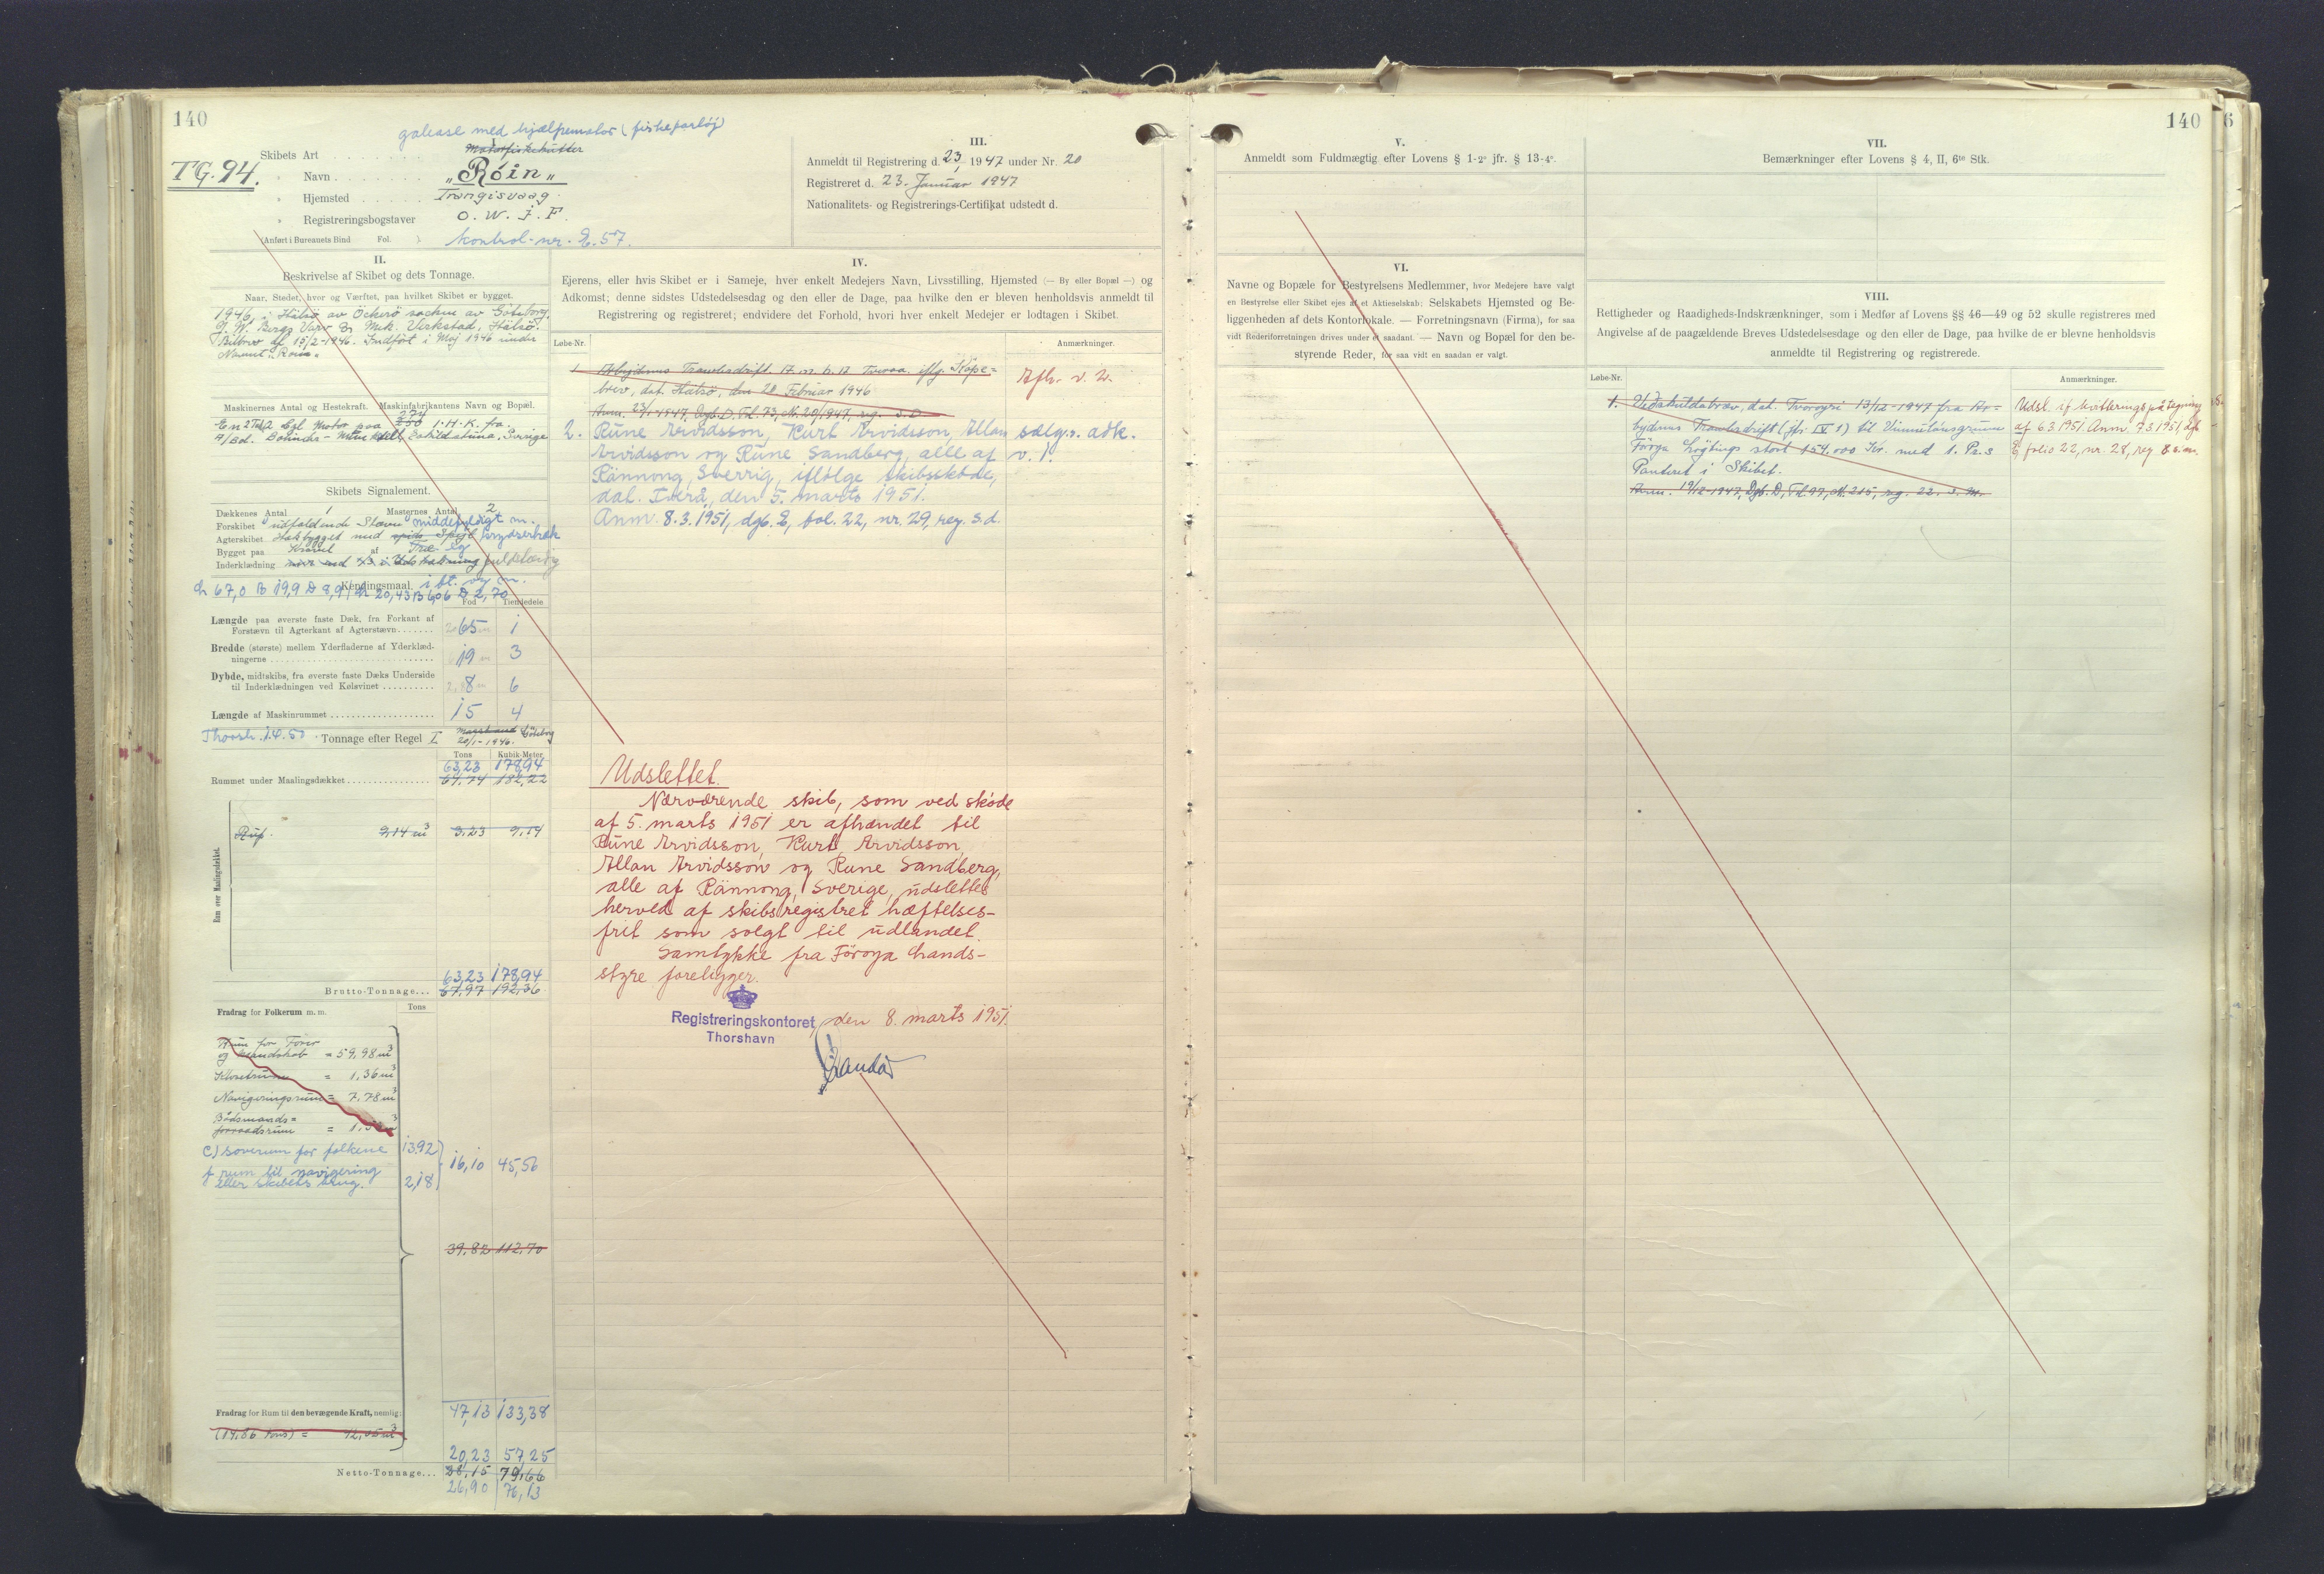 140
galease med hjælpemotor (fiskefartöj)
Skibets Art Motorfiskekutter
TG. 94.
" Navn "Róin"
" Hjemsted Trangisvaag.
" Registreringsbogstaver O. W. J. F.
(Anført i Bureauets Bind Fol. )
kontrol-nr. E. 57.
III.
Anmeldt til Registrering d. 23/1 1947 under Nr. 20
Registreret d. 23. Januar 1947
Nationalitets- og Registrerings-Certifikat udstedt d.
II.
Beskrivelse af Skibet og dets Tonnage.
Naar, Stedet, hvor og Værftet, paa hvilket Skibet er bygget.
1946, i Hälsö av Öckerö socken av Göteborg,
Bergs Varv & Mek. Verkstad, Hälsö.
Bilbrev af 15/2-1946. Indført i Maj 1946 under
Navnet "Roin".
Maskinernes Antal og Hestekraft. Maskinfabrikantens Navn og Bopæl.
274
En 2 Cyl. Motor paa 250 I.H.K. fra
A/Bol. Bolinder-Munktell, Eskilstuna, Sverige
Skibets Signalement.
Dækkenes Antal 1 Masternes Antal 2
Forskibet udfaldende Stævn middefyldigt m.
Agterskibet Hækbygget med spids Spejl krydserhæk
Bygget paa Kravel af Træ. eg
Inderklædning fuldstændig
Kendingsmaal. i ft. og m.
L 67,0 B 19,9 D 8,9 / L 20,43 B 6,06 D 2,70
Fod Tiendedele
Længde paa øverste faste Dæk, fra Forkant af
Forstævn til Agterkant af Agterstævn 65 1
Bredde (største) mellem Yderfladerne af Yderklæd-
ningerne 19 3
Dybde, midtskibs, fra øverste faste Dæks Underside
til Inderklædningen ved Kølsvinet 8 6
Længde af Maskinrummet 15 4
Thorsh. 1.4.50 Tonnage efter Regel I Marstrand Göteborg
20/1-1946.
Tons Kubik-Meter
63,23 178,94
Rummet under Maalingsdækket 64,74 182,22
Rum over Maalingsdækket.
Ruf. 9,14 m³ 3,23 9,14
63,23 178,94
Brutto-Tonnage 67,97 192,36
Fradrag for Folkerum m. m. Tons
Rum for Fører
og Mandskab = 59,98 m³
Klosetrum = 1,36 m³
Navigeringsrum = 7,78 m³
Bådsmands-
forraadsrum =
c) soverum for folkene 13,92
16,10 45,56
f rum til navigering
eller skibets brug. 2,18
39,82 112,70
47,13 133,38
Fradrag for Rum til den bevægende Kraft, nemlig:
(14,86 Tons) = 42,05 m³
20,23 57,25
Netto-Tonnage 28,15 79,66
26,90 76,13
IV.
Ejerens, eller hvis Skibet er i Sameje, hver enkelt Medejers Navn, Livsstilling, Hjemsted (— By eller Bopæl —) og
Adkomst; denne sidstes Udstedelsesdag og den eller de Dage, paa hvilke den er bleven henholdsvis anmeldt til
Registrering og registreret; endvidere det Forhold, hvori hver enkelt Medejer er lodtagen i Skibet.
Løbe-Nr. Anmærkninger.
1. Arbejdernes Trawlersdrift A.m.b.A Tveraa iflg. Köpe-
brev, dat. Hälsö, den 20 Februar 1946
Anm. 23/1-1947, Dgb. D, Fol. 73, N. 20/1947, reg. s. D.
Afh. v. 2.
2. Rune Arvidsson, Kurt Arvidsson, Allan
Arvidsson og Rune Sandberg, alle af
Rännong, Sverrig, ifølge skibsskøde,
dat. Tverå, den 5. marts 1951.
Anm. 8.3.1951, dgb. E, fol. 22, nr. 29, reg. s.d.
sælg.s. adk.
v. 1.
Udslettet.
Nærværende skib, som ved skøde
af 5. marts 1951 er afhændet til
Rune Arvidsson, Kurt Arvidsson,
Allan Arvidsson og Rune Sandberg,
alle af Rännong, Sverige, udslettes
herved af skibsregistret hæftelses-
frit som solgt til udlandet.
Samtykke fra Föroya Lands-
styre foreligger.
Registreringskontoret, den 8. marts 1951
Thorshavn
140
6
V.
Anmeldt som Fuldmægtig efter Lovens § 1-2° jfr. § 13-4°.
VI.
Navne og Bopæle for Bestyrelsens Medlemmer, hvor Medejere have valgt
en Bestyrelse eller Skibet ejes af et Aktieselskab: Selskabets Hjemsted og Be-
liggenheden af dets Kontorlokale. — Forretningsnavn (Firma), for saa
vidt Rederiforretningen drives under et saadant. — Navn og Bopæl for den be-
styrende Reder, for saa vidt en saadan er valgt.
VII.
Bemærkninger efter Lovens § 4, II, 6te Stk.
VIII.
Rettigheder og Raadigheds-Indskrænkninger, som i Medfør af Lovens §§ 46—49 og 52 skulle registreres med
Angivelse af de paagældende Breves Udstedelsesdage og den eller de Dage, paa hvilke de er blevne henholdsvis
anmeldte til Registrering og registrerede.
Løbe-Nr. Anmærkninger.
1. Veðskuldabræv, dat. Tvøroyri 13/12-1947 fra Ar-
bejdernes Trawlersdrift (jfr. IV 1) til Vinnulánsgrunn
Føroya Løgtings stort 154.000 Kr. med 1. Pr. s
Panteret i Skibet.
Anm. 19/12-1947, Dgb. D, Fol. 97, N. 215, reg. 22. s. M.
Udsl. if. kvitteringspåtegning
af 6.3.1951. Anm. 7.3.1951, dgb.
E, folio 22, nr. 28, reg. 8. s. m.